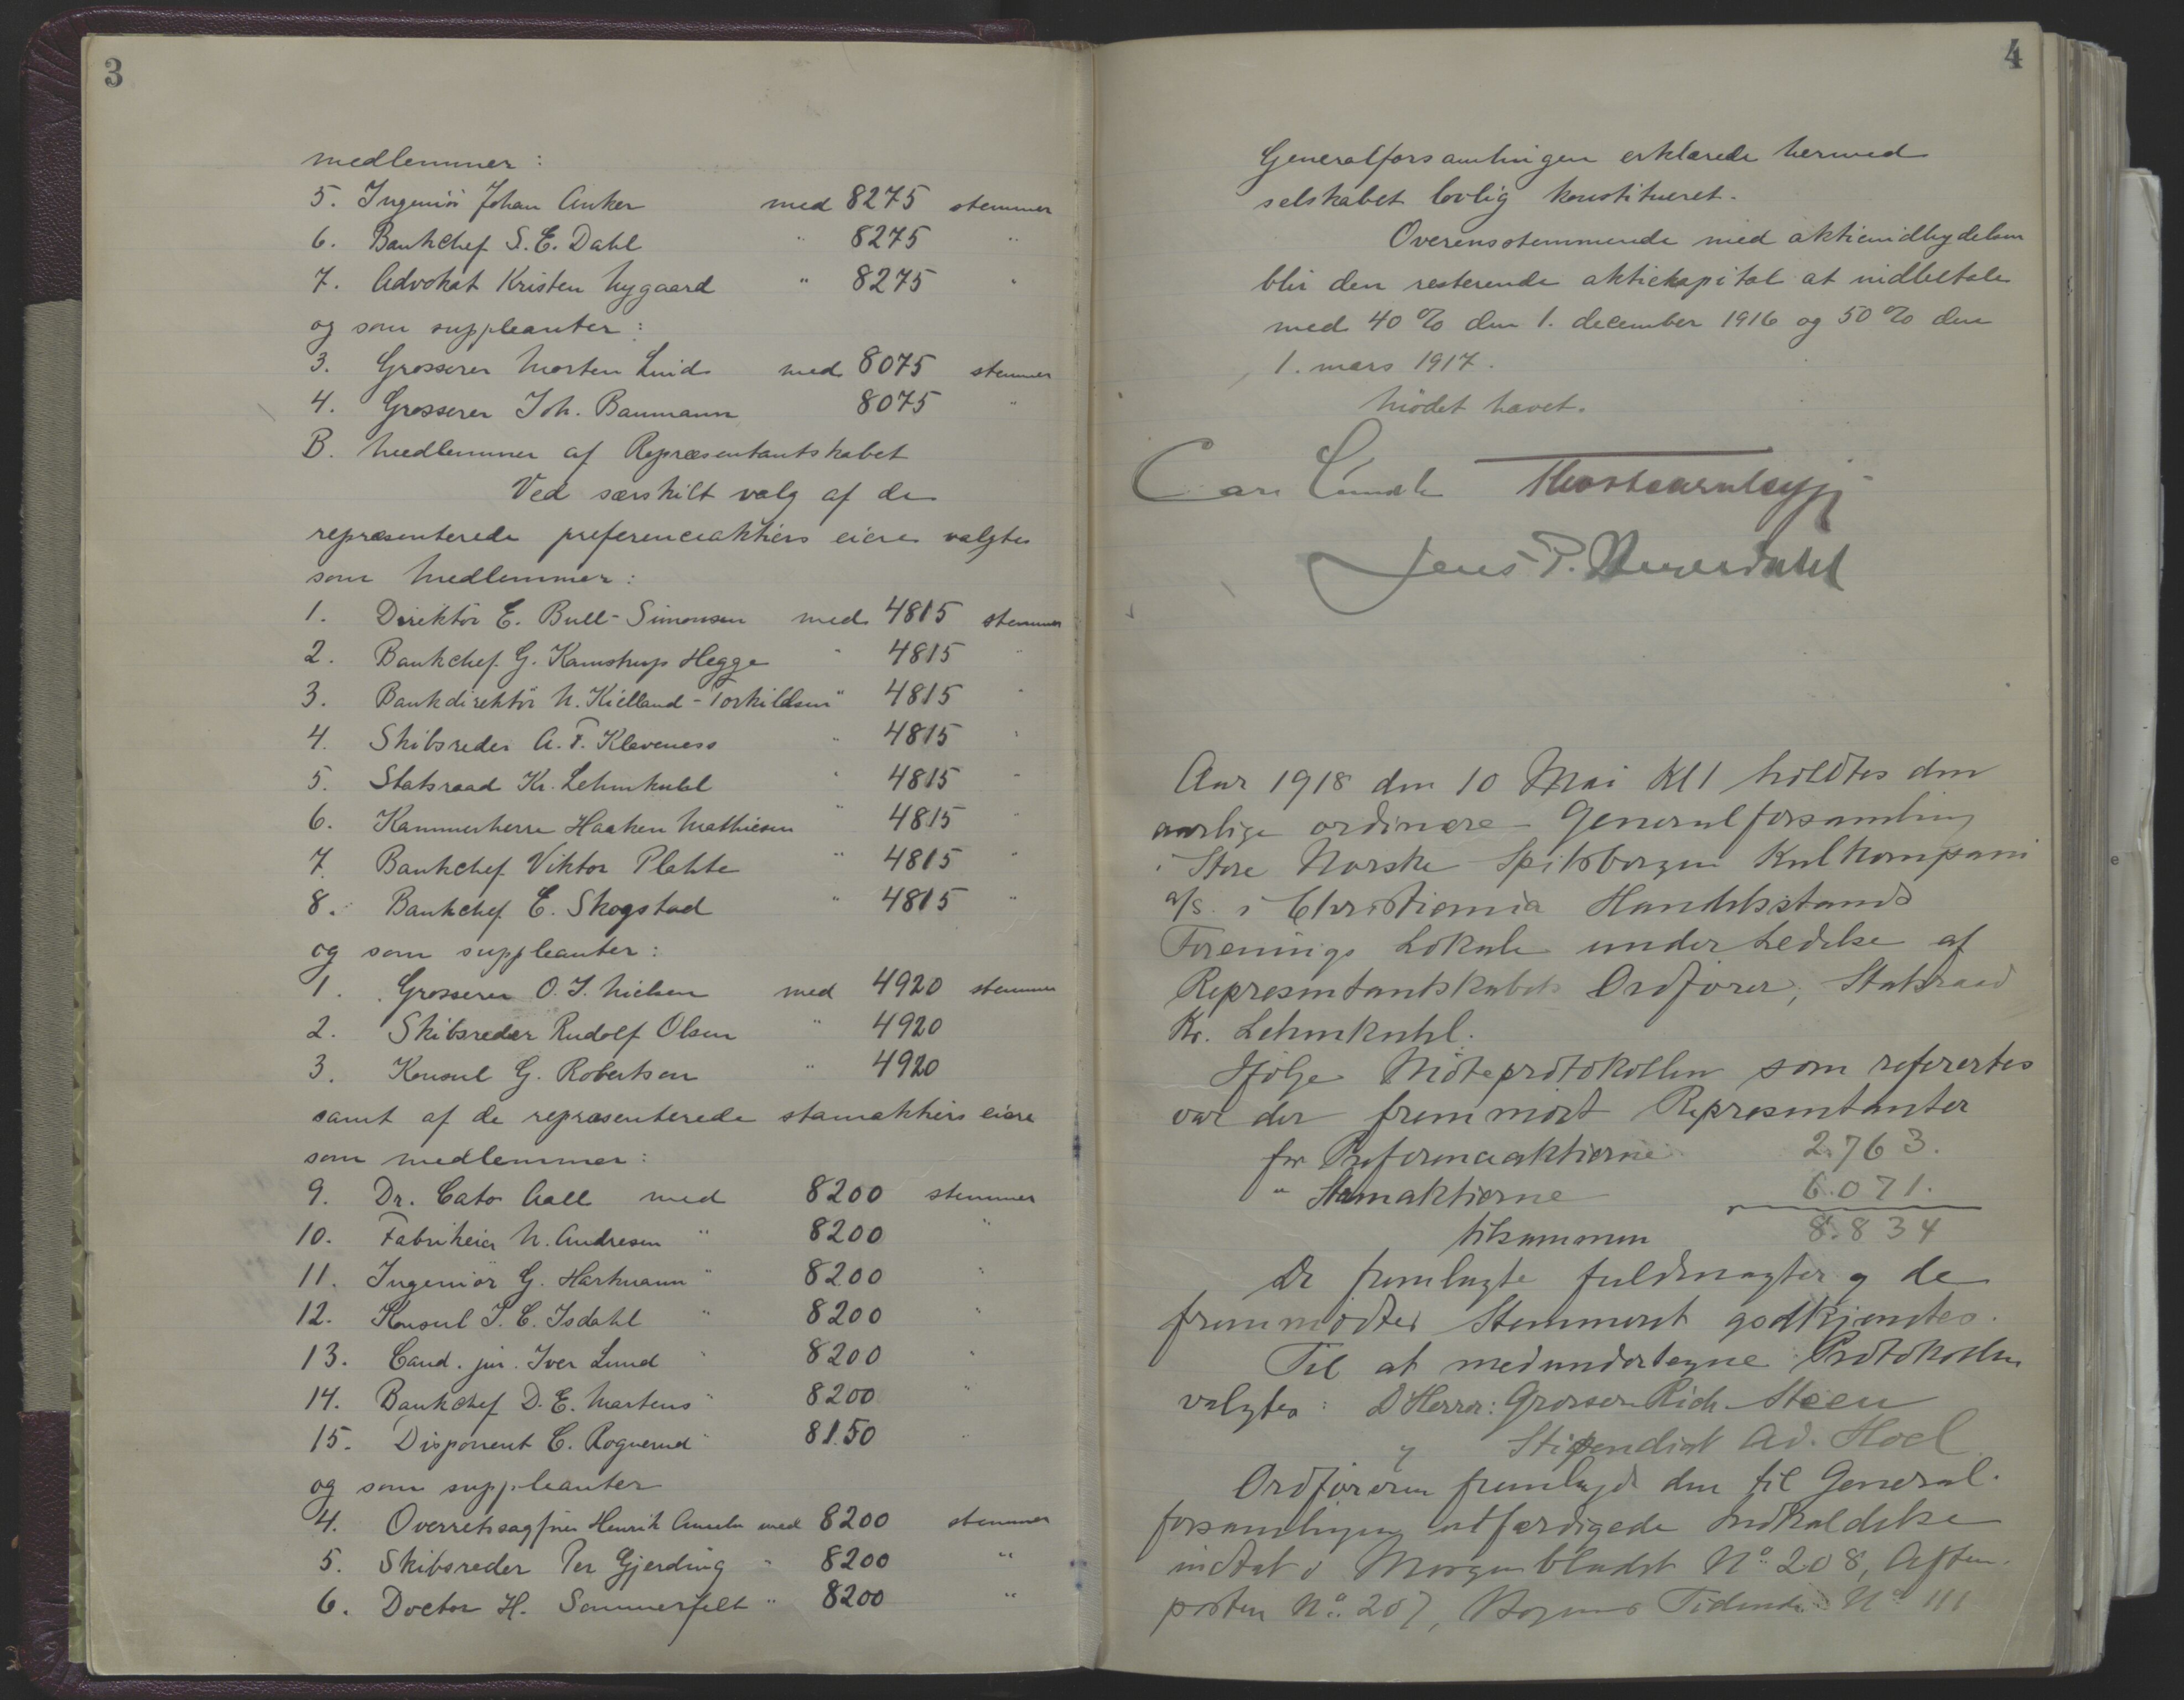 3
medlemmer:
5. Ingeniör Johan Anker med 8275 stemmer
6. Bankchef S. E. Dahl " 8275 "
7. Advokat Kristen Nygaard " 8275 "
og som suppleanter:
3. Grosserer Morten Lind med 8075 stemmer
4. Grosserer Joh. Baumann 8075 "
B. Medlemmer af Repræsentantskabet
Ved særskilt valg af de
repræsenterede preferenceaktiers eiere valgtes
som Medlemmer:
1. Direktör E. Bull-Simonsen med 4815 stemmer
2. Bankchef G. Kamstrup Hegge " 4815 "
3. Bankdirektör N. Kielland-Torkildsen " 4815 "
4. Skibsreder A. F. Klaveness " 4815 "
5. Statsraad Kr. Lehmkuhl " 4815 "
6. Kammerherre Haaken Mathiesen " 4815 "
7. Bankchef Viktor Plahte " 4815 "
8. Bankchef E. Skogstad " 4815 "
og som suppleanter:
1. Grosserer O. J. Nielsen med 4920 stemmer
2. Skibsreder Rudolf Olsen " 4920
3. Konsul G. Robertson " 4920
samt af de repræsenterede stamaktiers eiere
som medlemmer:
9. Dr. Cato Aall med 8200 stemmer
10. Fabrikeier N. Andresen " 8200 "
11. Ingeniör G. Hartmann " 8200 "
12. Konsul I. C. Isdahl " 8200 "
13. Cand. jur. Iver Lund " 8200 "
14. Bankchef D. E. Martens " 8200 "
15. Disponent C. Rognerud " 8150 "
og som suppleanter
4. Overretssagfører Henrik Ameln med 8200 stemmer
5. Skibsreder Per Gjerding " 8200 "
6. Doctor H. Sommerfelt " 8200 "
4
Generalforsamlingen erklærede hermed
selskabet lovlig konstitueret.
Overensstemmende med aktieindbydelsen
blir den resterende aktiekapital at indbetale
med 40 % den 1. december 1916 og 50 % den
1. mars 1917.
Mödet hævet.
Carl Lundh
Jens P.
Aar 1918 den 10 Mai Kl 1 holdtes den
aarlige ordinære Generalforsamling
i Store Norske Spitsbergen Kulkompani
a/s. i Christiania Handelsstands
Forenings Lokale under Ledelse af
Repræsentantskabets Ordfører, Statsraad
Kr. Lehmkuhl.
Ifølge Møteprotokollen som referertes
var der fremmødt Repræsentanter
for Preferenceaktierne 2.763.
" Stamaktierne 6.071.
tilsammen 8.834
De fremlagte fuldmagter og de
fremmødtes Stemmeret godkjendtes.
Til at medundertegne Protokollen
valgtes: D'Herrer: Grosserer Rich. Steen
og Stipendiat Ad. Hoel
Ordføreren fremlagde den til General-
forsamlingen utfærdigede Indkaldelse
indtat i Morgenbladet No. 208, Aften-
posten No. 207, Bergens Tidende No 111